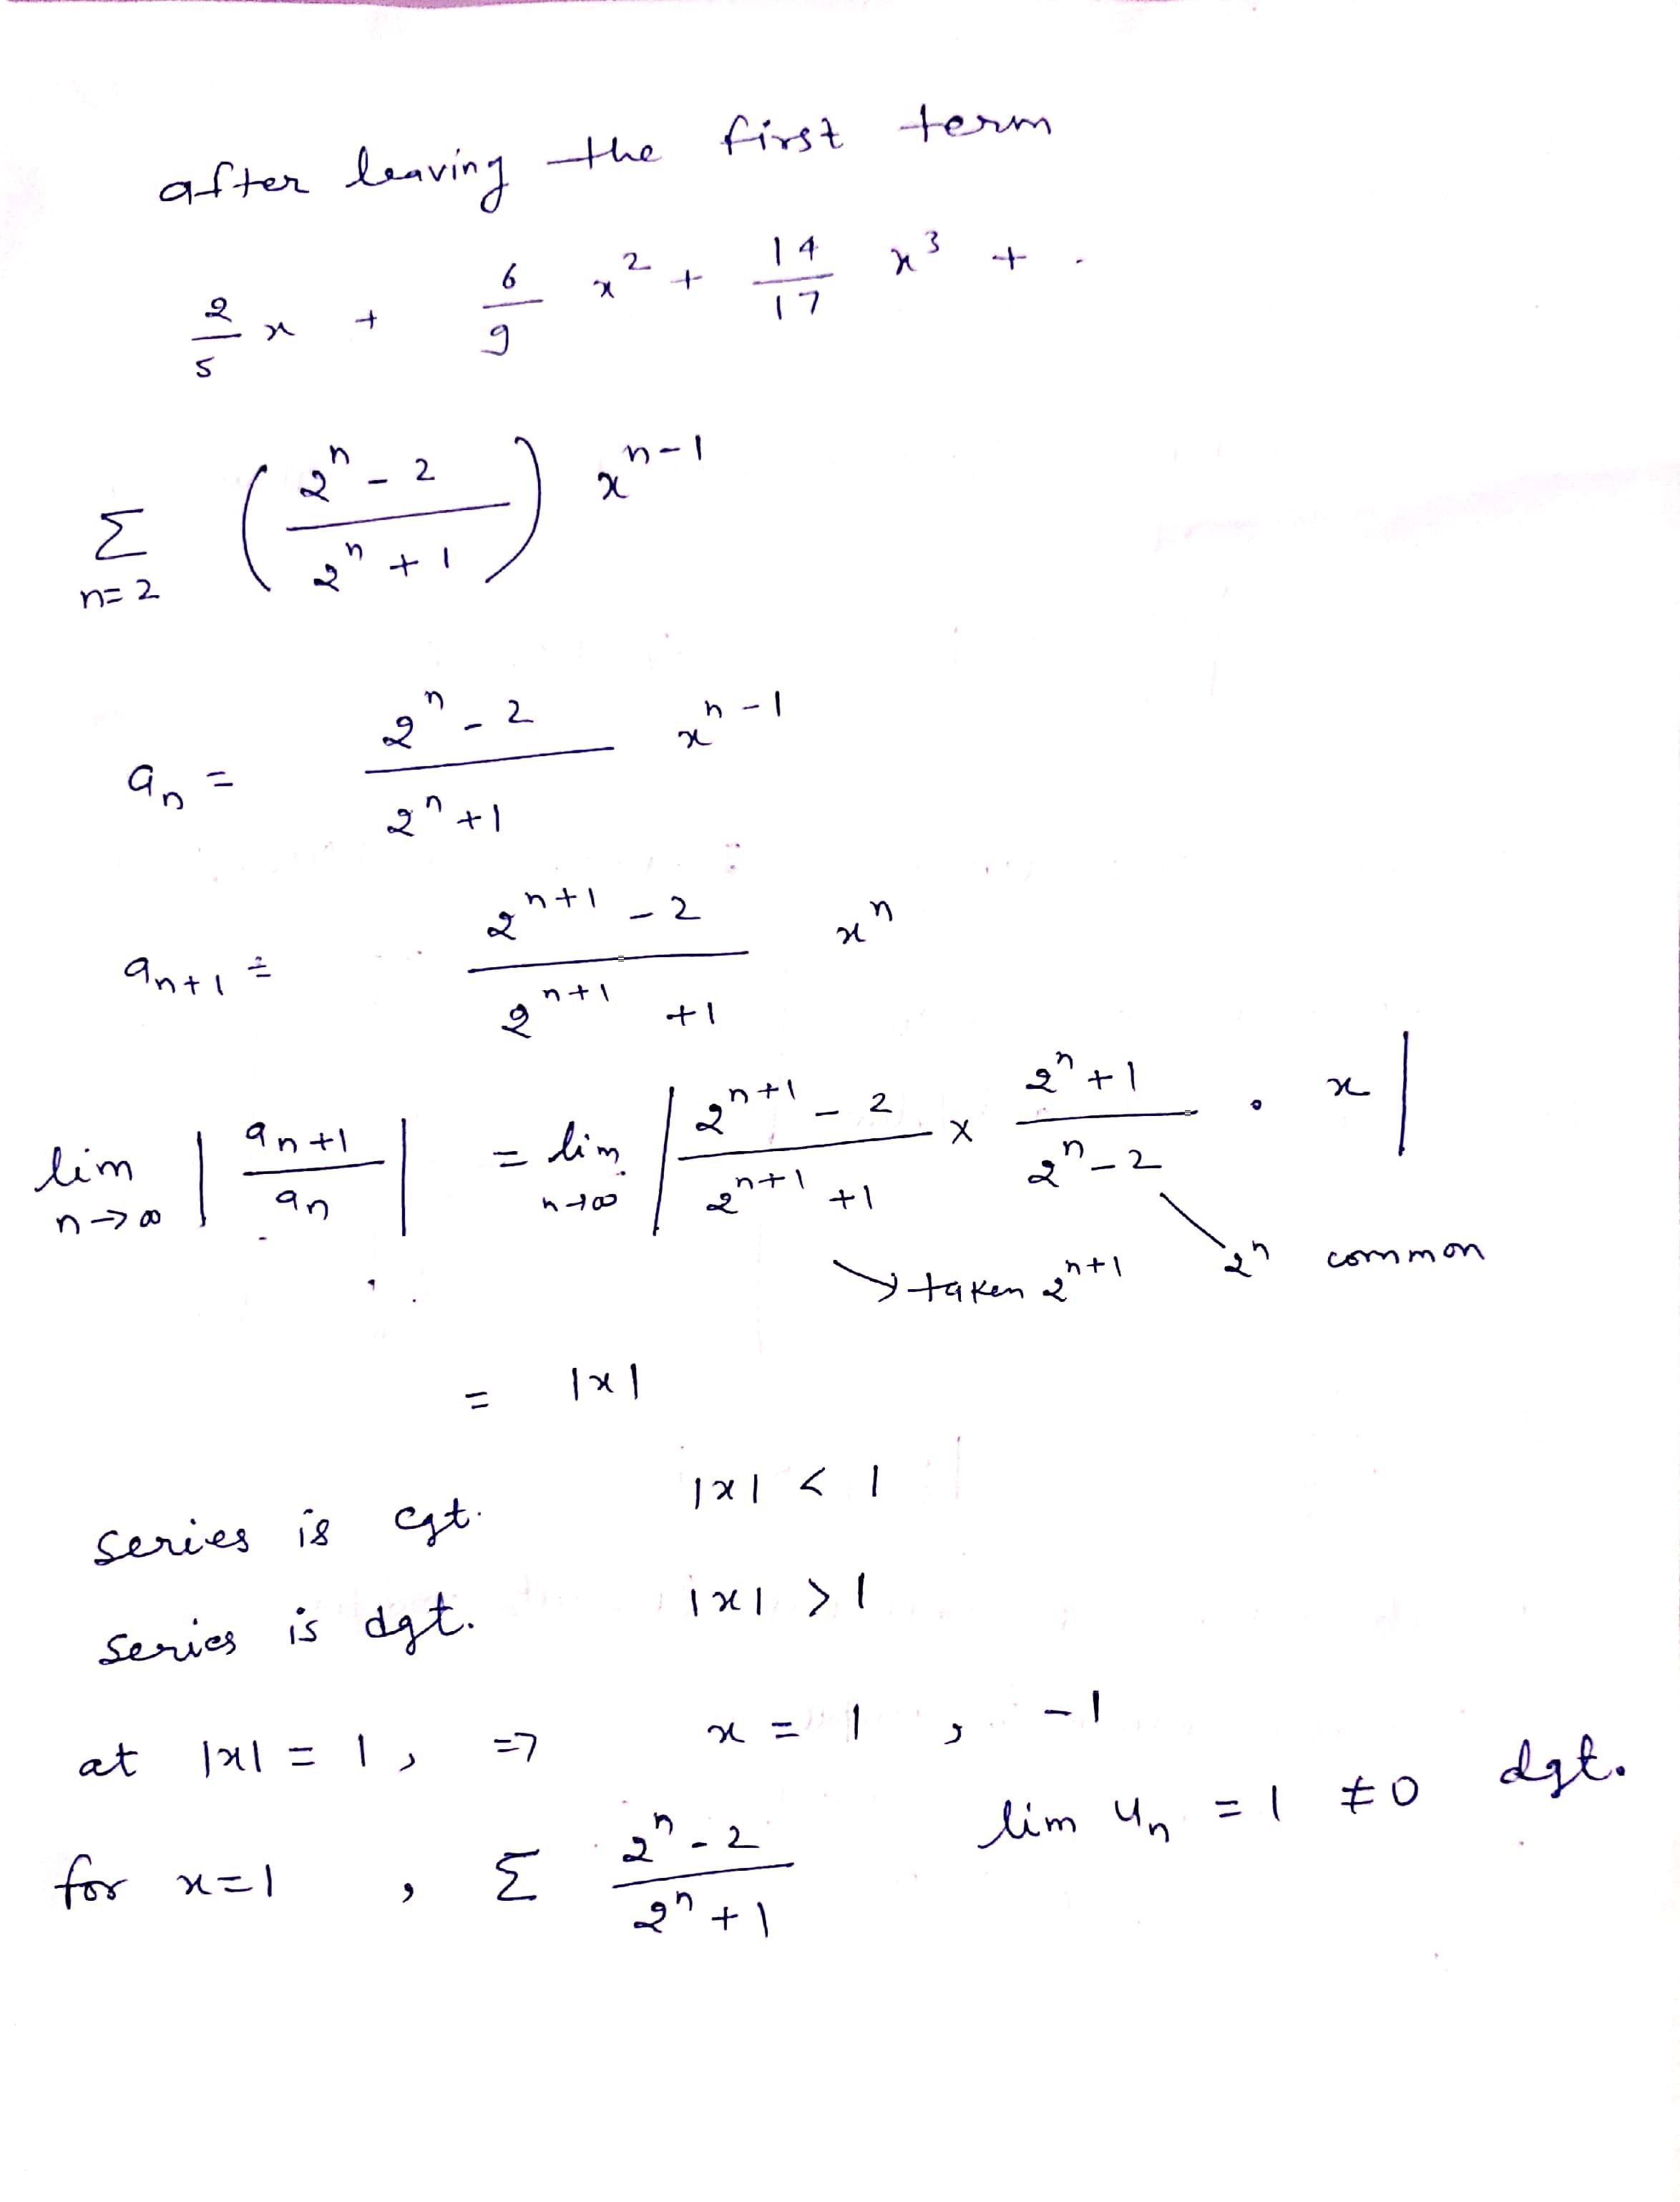 after leaving the first term
2/5 x + 6/9 x² + 14/17 x³ + .
Σ n=2 ( 2ⁿ - 2 / 2ⁿ + 1 ) xⁿ⁻¹
aₙ = 2ⁿ - 2 / 2ⁿ + 1 xⁿ⁻¹
aₙ₊₁ = 2ⁿ⁺¹ - 2 / 2ⁿ⁺¹ + 1 xⁿ
lim n→∞ | aₙ₊₁ / aₙ | = lim n→∞ | 2ⁿ⁺¹ - 2 / 2ⁿ⁺¹ + 1 × 2ⁿ + 1 / 2ⁿ - 2 . x |
→ taken 2ⁿ⁺¹ 2ⁿ common
= |x|
series is cgt. |x| < 1
series is dgt. |x| > 1
at |x| = 1, ⇒ x = 1, -1
for x=1, Σ 2ⁿ - 2 / 2ⁿ + 1 lim uₙ = 1 ≠ 0 dgt.